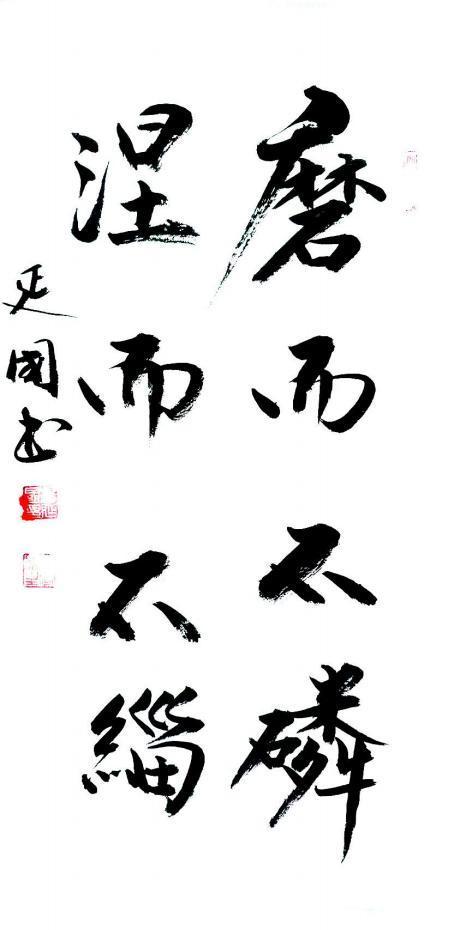 磨而不磷
涅而不緇
延國书